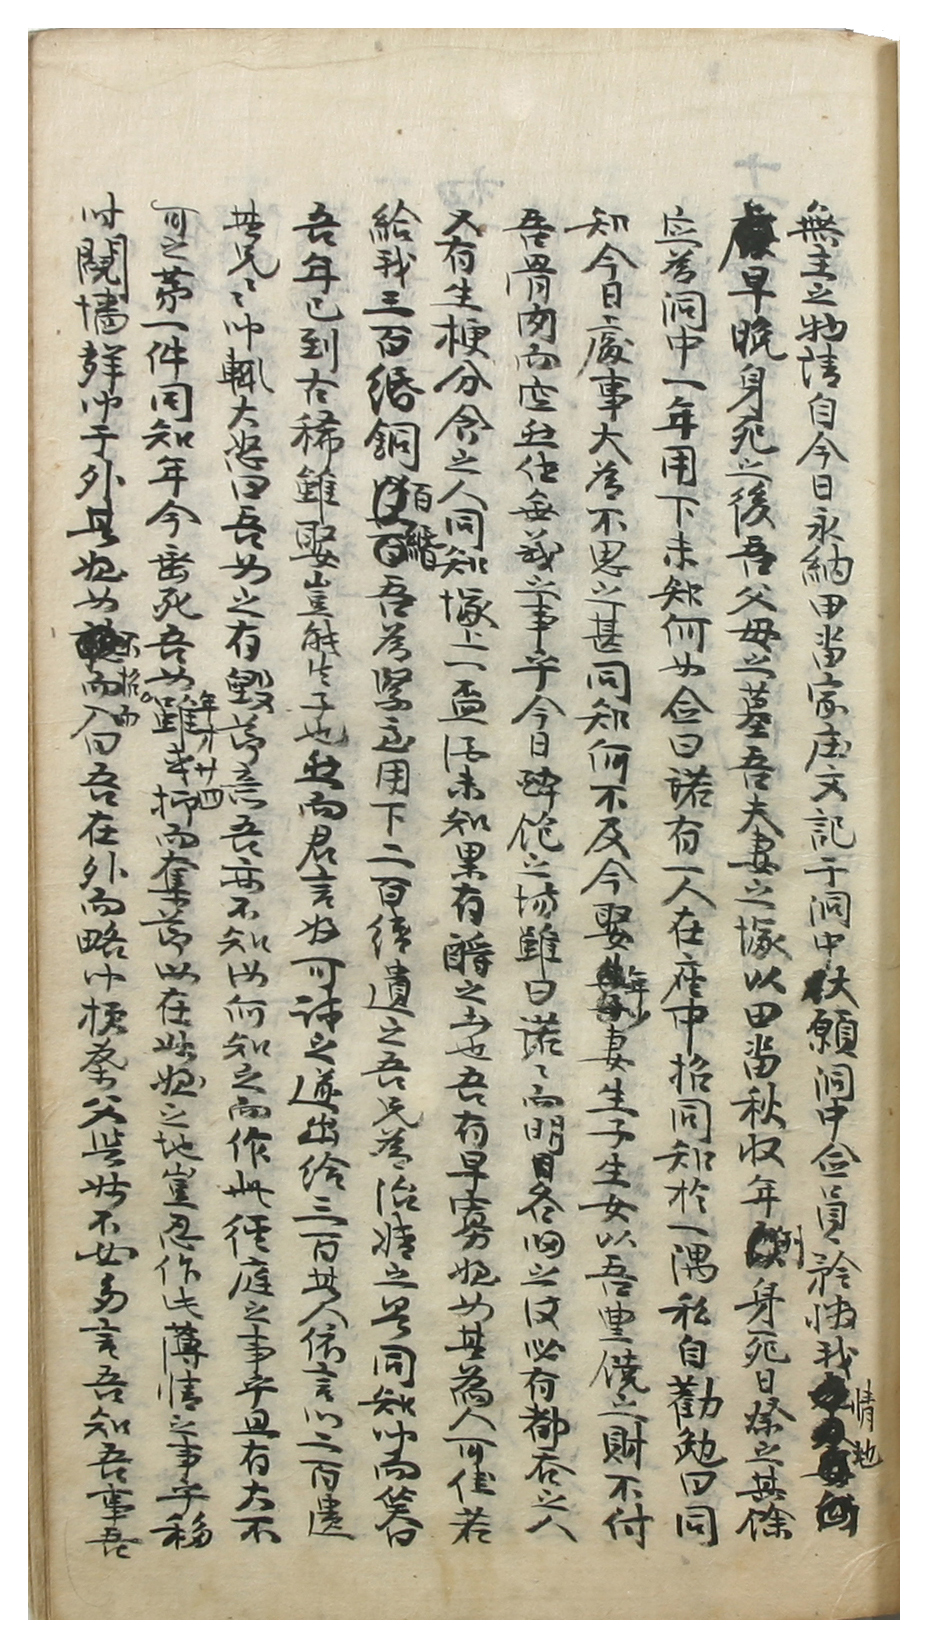 無主之物請自今日永納田畓家庄文記于洞中伏願洞中僉員矜憐我情地
早晩身死之後吾父母之墓吾夫妻之塚以田畓秋收年例身死日祭之其餘
應爲洞中一年用下未知何如僉曰諾有一人在座中招同知於一隅私自勸勉曰同
知今日處事大爲不思之甚同知何不及今娶年少妻生子生女以吾豊饒之財不付
吾骨肉而空然作無義之事乎今日醉飽之場雖曰諾諾而明日各歸之後必有都呑之人
又有生梗分食之人同知塚上一盃酒未知果有酹之者也吾有早寡嫂女其爲人可佳若
給我三百緡銅百緡吾爲緊急用下二百緡遺之吾兄爲治婚之具同知呵而答曰
吾年已到古稀雖娶豈能生子也然而君言好可試之遂出給三百其人依言以二百遺
其兄兄呵輒大怒曰吾女之有毁節意吾亦不知汝何知之而作此徑庭之事乎且有大不
可之第一件同知年今垂死吾女雖年才廿四或抑而奪節以在此嫂之地豈忍作此薄情之事乎移
時鬩墻詳呵于外其嫂女不格而入曰吾在外而略呵梗槩父出此不必多言吾知吾事吾